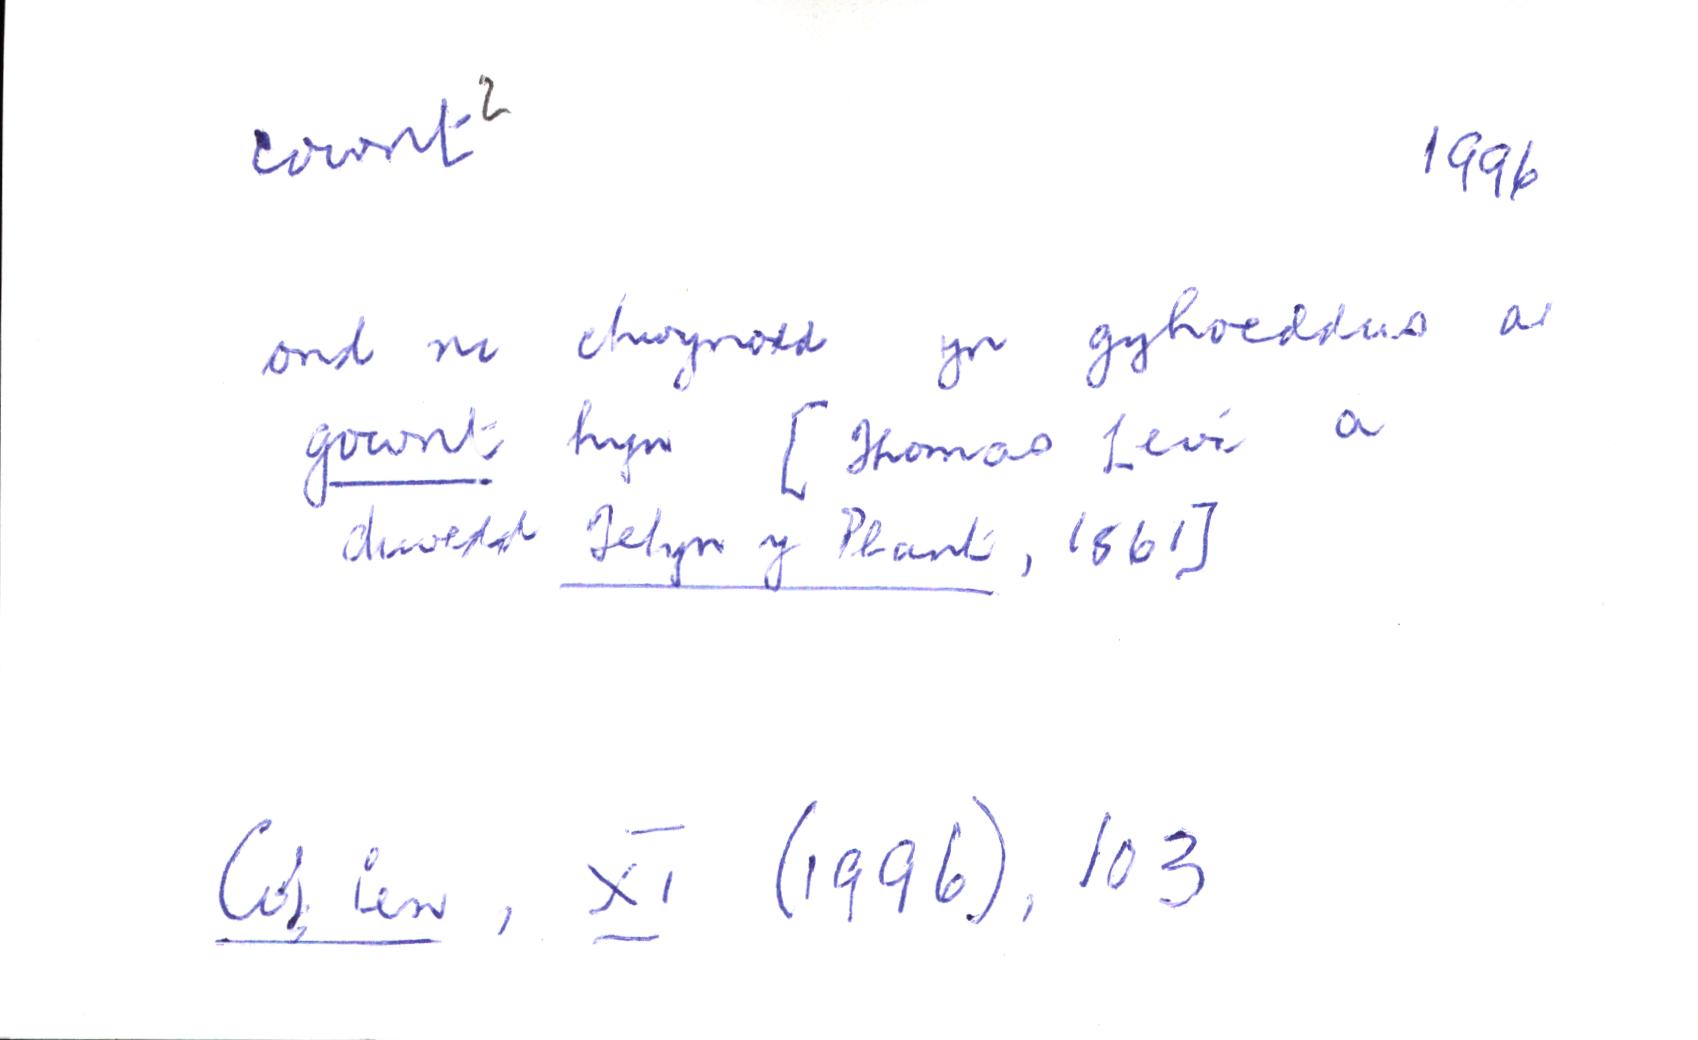 cownt²
1996
ond ni chwynodd yn gyhoeddus ar
gownt hyn [Thomas Levi a
diwedd Telyn y Plant, 1861]
Cof Cen, XI (1996), 103